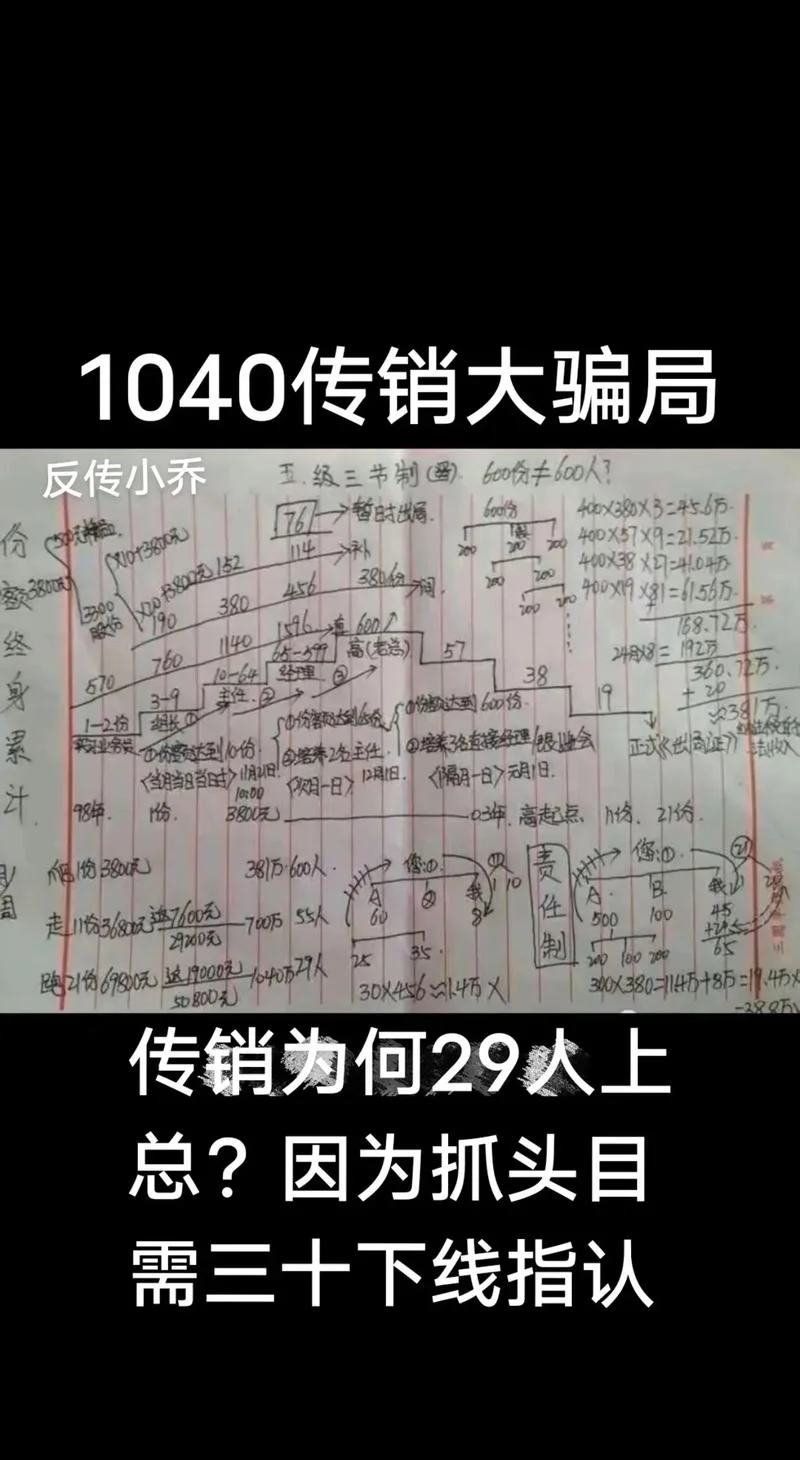 1040传销大骗局
反传小乔
五级三节制(晋) 600份≠600人?
份额终身累计
3800元
500元
3300
股份
×10+3800元
×20+3800元
76 → 暂时出局
152 114 → 补
190 380 456 380份
570 760 1140 1596 600
1-2份
3-9
组长 ①
10-64
主任 ②
65-599
经理 ③
高(老总)
57
38
19
600份
200 200 200
200 200
200 200
400×380×3=45.6万
400×57×9=21.52万
400×38×27=41.04万
400×19×81=61.56万
168.72万
24×8=192万
360.72万
+20
≈381万
正式《出局证》
①份额达到10份
〈当月当日当时〉11月21日
10:00
①份额达到65份
②培养2名主任
〈次月一日〉12月1日
①份额达到600份
②培养3名直接经理
〈隔月一日〉元月1日
98年 1份 3800元
03年 高起点 11份 21份
1份3800元 381万·600人
走11份36800元 送7600元 700万 55人
29200元
跑21份69800元 送19000元 1040万 29人
50800元
您① ⑪
A ② 我
60 8 1 10
25 35
30×456≈1.4万
责任制
您① ㉑
A B 我
500 100 45
65
200 100 200
300×380=11.4万+8万=19.4万×
传销为何29人上
总？因为抓头目
需三十下线指认